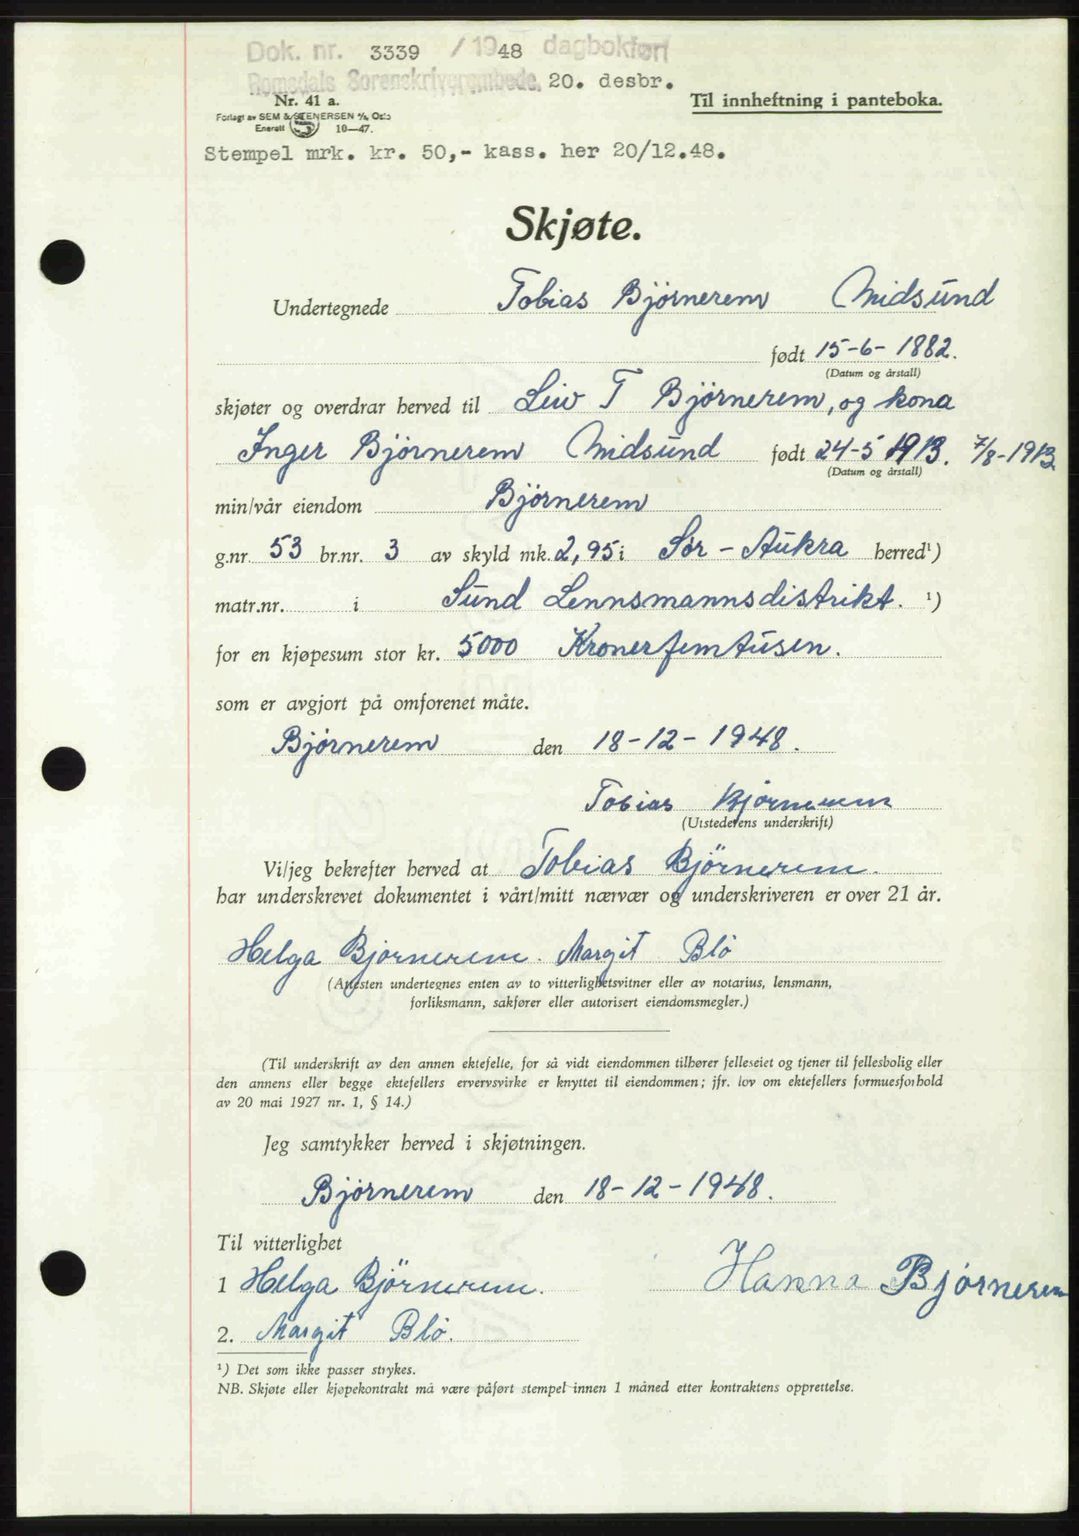 Dok. nr. 3339 / 1948 dagbokført
Romsdals Sorenskriverembede, 20. desbr.
Nr. 41 a.
Til innheftning i panteboka.
Forlagt av SEM & STENERSEN A/S, Oslo
Enerett 10—47.
Stempel mrk. kr. 50,- kass. her 20/12.48.
Skjøte.
Undertegnede Tobias Bjørnerem Midsund
født 15-6-1882.
(Datum og årstall)
skjøter og overdrar herved til Leiv T Bjørnerem, og kona
Inger Bjørnerem Midsund født 24-5 1913. 7/8-1913
(Datum og årstall)
min/vår eiendom Bjørnerem
g.nr. 53 br.nr. 3 av skyld mk. 2,95 i Sør-Aukra herred¹)
matr.nr. i Sund Lennsmannsdistrikt. ¹)
for en kjøpesum stor kr. 5000 Kroner femtusen.
som er avgjort på omforenet måte.
Bjørnerem den 18-12-1948.
Tobias Bjørnerem
(Utstederens underskrift)
Vi/jeg bekrefter herved at Tobias Bjørnerem.
har underskrevet dokumentet i vårt/mitt nærvær og underskriveren er over 21 år.
Helga Bjørnerem. Margit Blø
(Attesten undertegnes enten av to vitterlighetsvitner eller av notarius, lensmann,
forliksmann, sakfører eller autorisert eiendomsmegler.)
(Til underskrift av den annen ektefelle, for så vidt eiendommen tilhører felleseiet og tjener til fellesbolig eller
den annens eller begge ektefellers ervervsvirke er knyttet til eiendommen; jfr. lov om ektefellers formuesforhold
av 20 mai 1927 nr. 1, § 14.)
Jeg samtykker herved i skjøtningen.
Bjørnerem den 18-12-1948.
Til vitterlighet
1 Helga Bjørnerem.
Hanna Bjørnerem
2. Margit Blø.
¹) Det som ikke passer strykes.
NB. Skjøte eller kjøpekontrakt må være påført stempel innen 1 måned etter kontraktens opprettelse.